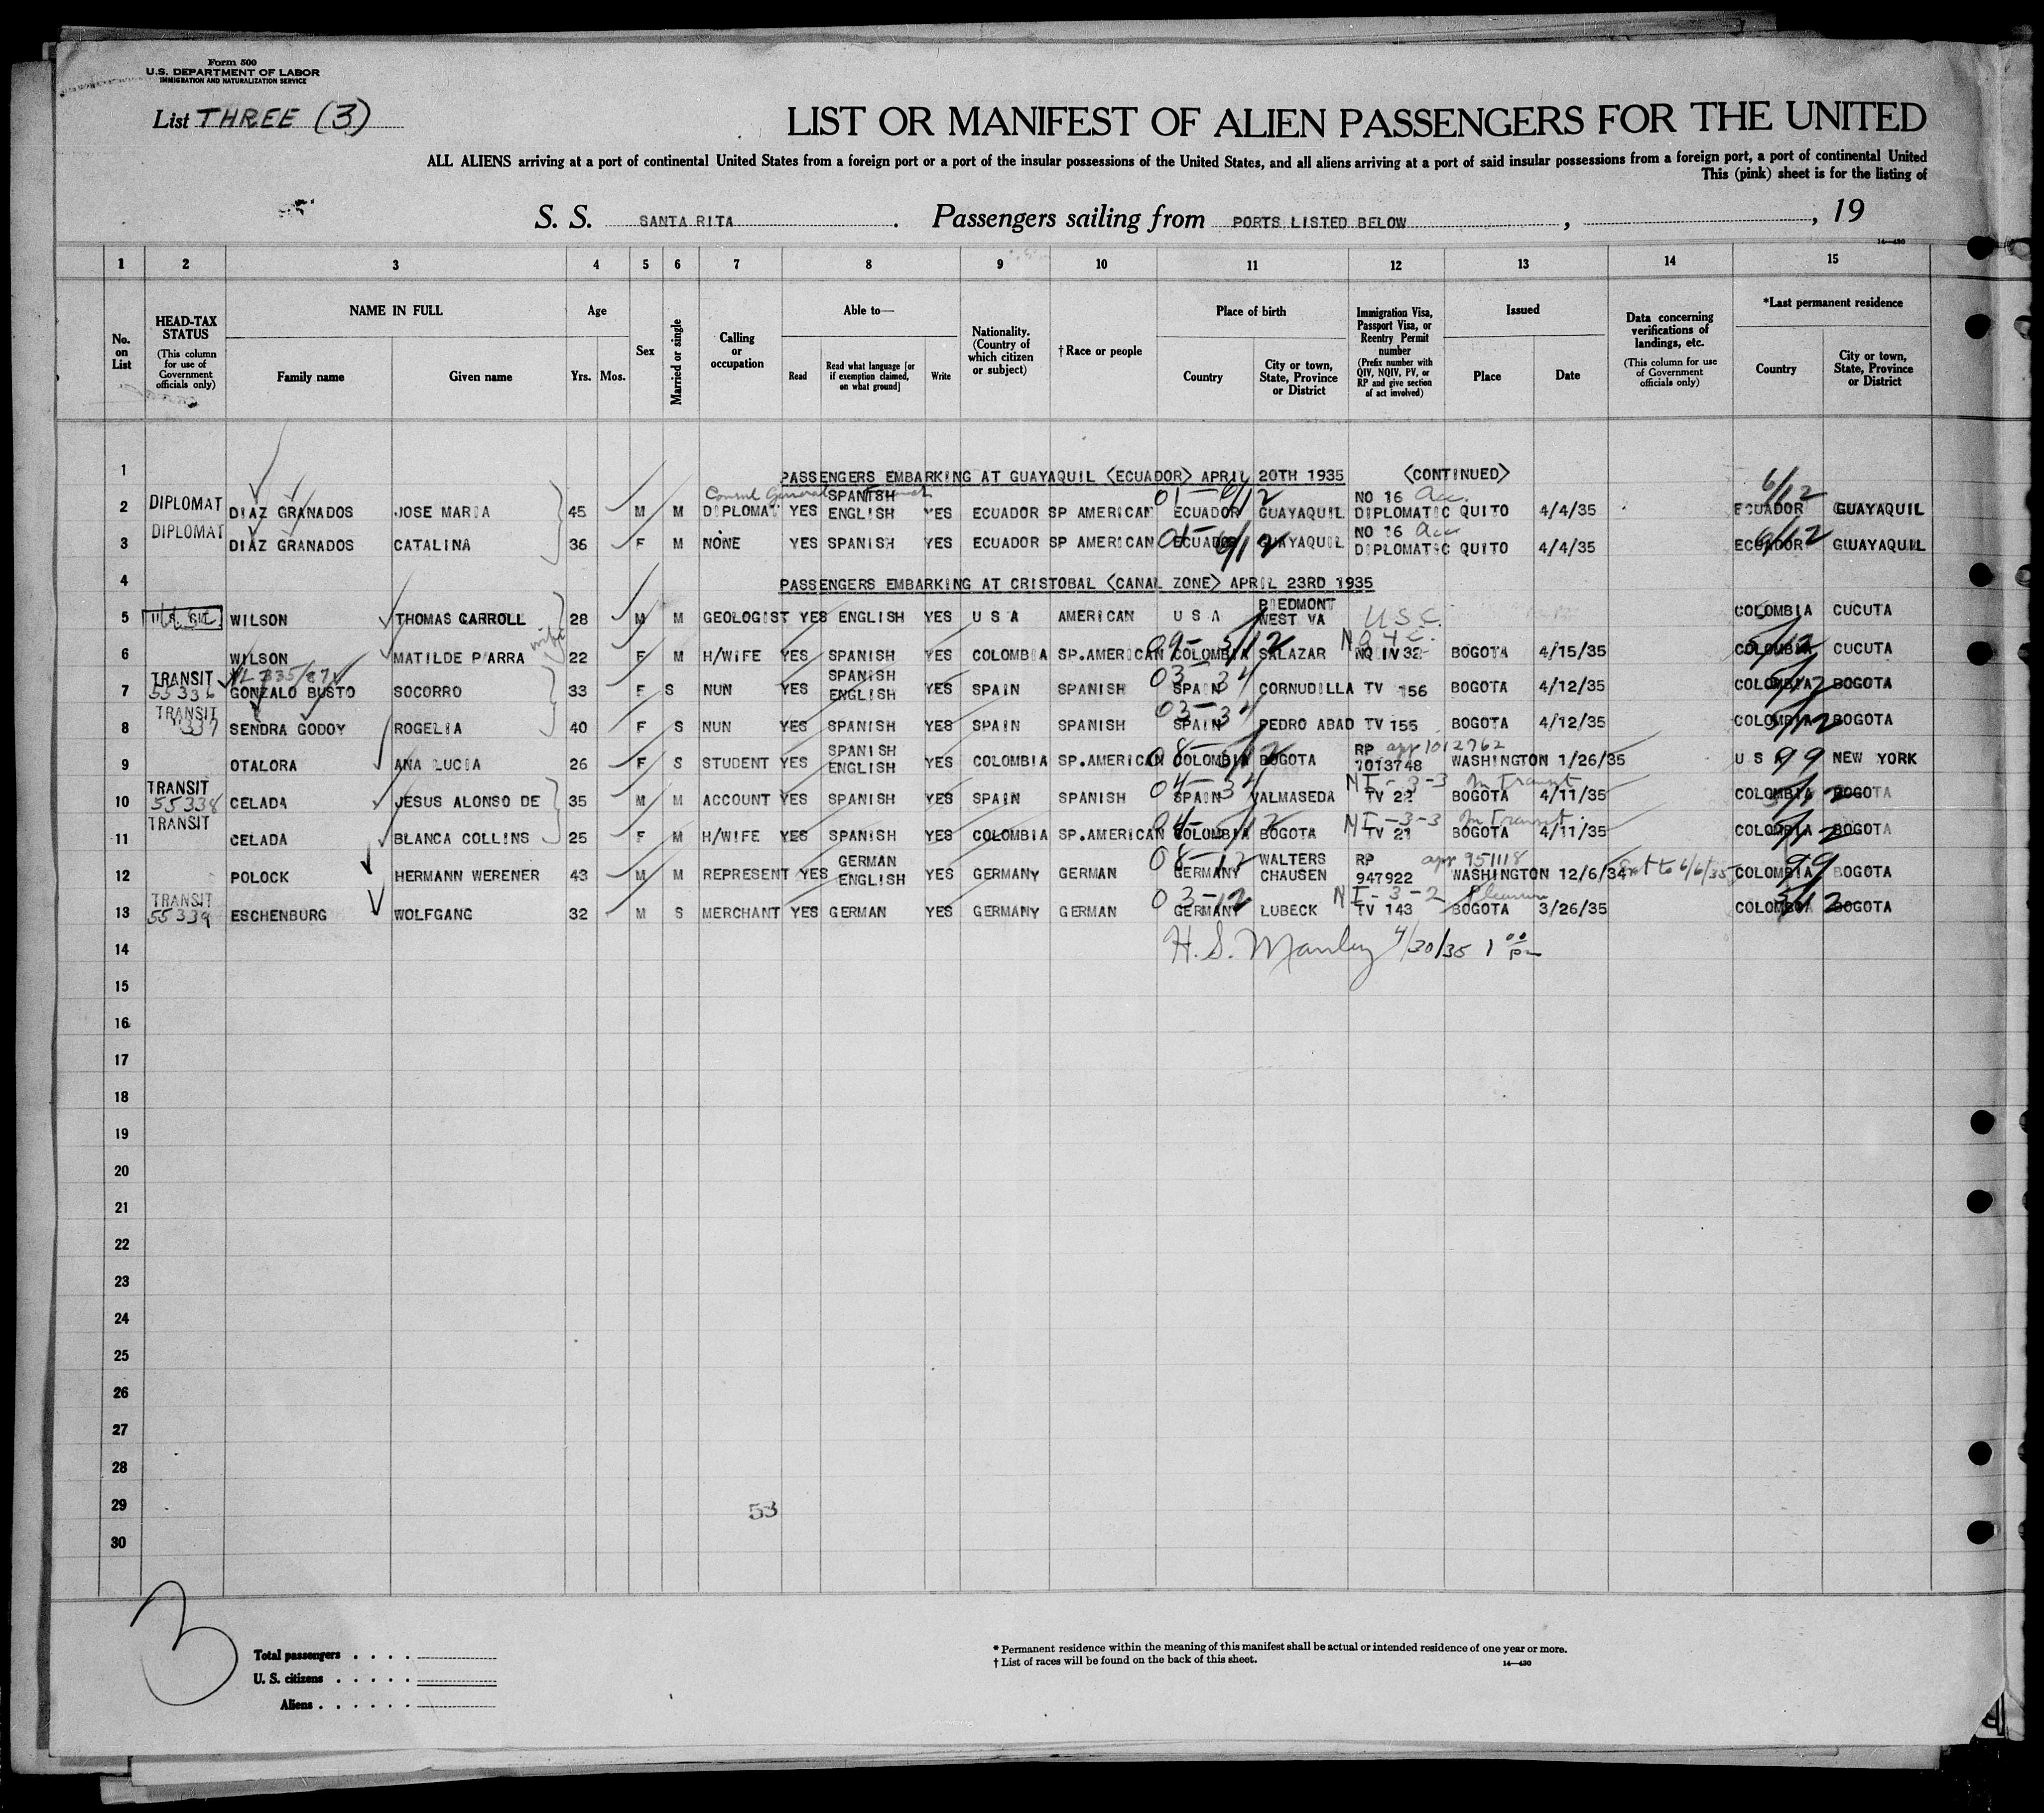 Form 500
U.S. DEPARTMENT OF LABOR
IMMIGRATION AND NATURALIZATION SERVICE
List THREE (3)
LIST OR MANIFEST OF ALIEN PASSENGERS FOR THE UNITED
ALL ALIENS arriving at a port of continental United States from a foreign port or a port of the insular possessions of the United States, and all aliens arriving at a port of said insular possessions from a foreign port, a port of continental United
This (pink) sheet is for the listing of
S. S. SANTA RITA. Passengers sailing from PORTS LISTED BELOW, , 19
14—430
1 2 3 4 5 6 7 8 9 10 11 12 13 14 15
No. on List
HEAD-TAX STATUS (This column for use of Government officials only)
NAME IN FULL Family name Given name
Age Yrs. Mos.
Sex
Married or single
Calling or occupation
Able to— Read Read what language [or if exemption claimed, on what ground] Write
Nationality. (Country of which citizen or subject)
†Race or people
Place of birth Country City or town, State, Province or District
Immigration Visa, Passport Visa, or Reentry Permit number (Prefix number with QIV, NQIV, PV, or RP and give section of act involved)
Issued Place Date
Data concerning verifications of landings, etc. (This column for use of Government officials only)
*Last permanent residence Country City or town, State, Province or District
1 PASSENGERS EMBARKING AT GUAYAQUIL (ECUADOR) APRIL 20TH 1935 (CONTINUED)
2 DIPLOMAT DIAZ GRANADOS JOSE MARIA 45 M M Consul General DIPLOMAT YES SPANISH ENGLISH YES ECUADOR SP AMERICAN 01-6/12 ECUADOR GUAYAQUIL NO 16 DIPLOMATIC QUITO 4/4/35 6/12 ECUADOR GUAYAQUIL
3 DIPLOMAT DIAZ GRANADOS CATALINA 36 F M NONE YES SPANISH YES ECUADOR SP AMERICAN 01-6/12 ECUADOR GUAYAQUIL NO 16 DIPLOMATIC QUITO 4/4/35 6/12 ECUADOR GUAYAQUIL
4 PASSENGERS EMBARKING AT CRISTOBAL (CANAL ZONE) APRIL 23RD 1935
5 WILSON THOMAS CARROLL 28 M M GEOLOGIST YES ENGLISH YES U S A AMERICAN U S A PIEDMONT WEST VA U.S.C. COLOMBIA CUCUTA
6 WILSON MATILDE PARRA wife 22 F M H/WIFE YES SPANISH YES COLOMBIA SP.AMERICAN 09-5/12 COLOMBIA SALAZAR NQ 4C. NQ IV 32 BOGOTA 4/15/35 5/12 COLOMBIA CUCUTA
7 TRANSIT 55336 GONZALO BUSTO SOCORRO 33 F S NUN YES SPANISH ENGLISH YES SPAIN SPANISH 03-34 SPAIN CORNUDILLA TV 156 BOGOTA 4/12/35 COLOMBIA BOGOTA
8 TRANSIT 337 SENDRA GODOY ROGELIA 40 F S NUN YES SPANISH YES SPAIN SPANISH 03-34 SPAIN PEDRO ABAD TV 155 BOGOTA 4/12/35 5/12 COLOMBIA BOGOTA
9 OTALORA ANA LUCIA 26 F S STUDENT YES SPANISH ENGLISH YES COLOMBIA SP.AMERICAN 08-5/12 COLOMBIA BOGOTA RP app 1012762 1013748 WASHINGTON 1/26/35 U S A 99 NEW YORK
10 TRANSIT 55338 CELADA JESUS ALONSO DE 35 M M ACCOUNT YES SPANISH YES SPAIN SPANISH 04-34 SPAIN VALMASEDA NI-3-3 In Transit TV 22 BOGOTA 4/11/35 5/12 COLOMBIA BOGOTA
11 TRANSIT CELADA BLANCA COLLINS 25 F M H/WIFE YES SPANISH YES COLOMBIA SP.AMERICAN 04-5/12 COLOMBIA BOGOTA NI-3-3 In Transit. TV 21 BOGOTA 4/11/35 5/12 COLOMBIA BOGOTA
12 POLOCK HERMANN WERENER 43 M M REPRESENT YES GERMAN ENGLISH YES GERMANY GERMAN 08-12 GERMANY WALTERS CHAUSEN RP app 951118 947922 WASHINGTON 12/6/34 Ext to 6/6/35 99 COLOMBIA BOGOTA
13 TRANSIT 55339 ESCHENBURG WOLFGANG 32 M S MERCHANT YES GERMAN YES GERMANY GERMAN 03-12 GERMANY LUBECK NI-3-2 Pleasure TV 143 BOGOTA 3/26/35 5/12 COLOMBIA BOGOTA
14 H. S. Manley 4/30/35 1 00 pm
15
16
17
18
19
20
21
22
23
24
25
26
27
28
29 53
30
3
Total passengers . . . .
U. S. citizens . . . . .
Aliens . . . . . .
* Permanent residence within the meaning of this manifest shall be actual or intended residence of one year or more.
† List of races will be found on the back of this sheet.
14—430